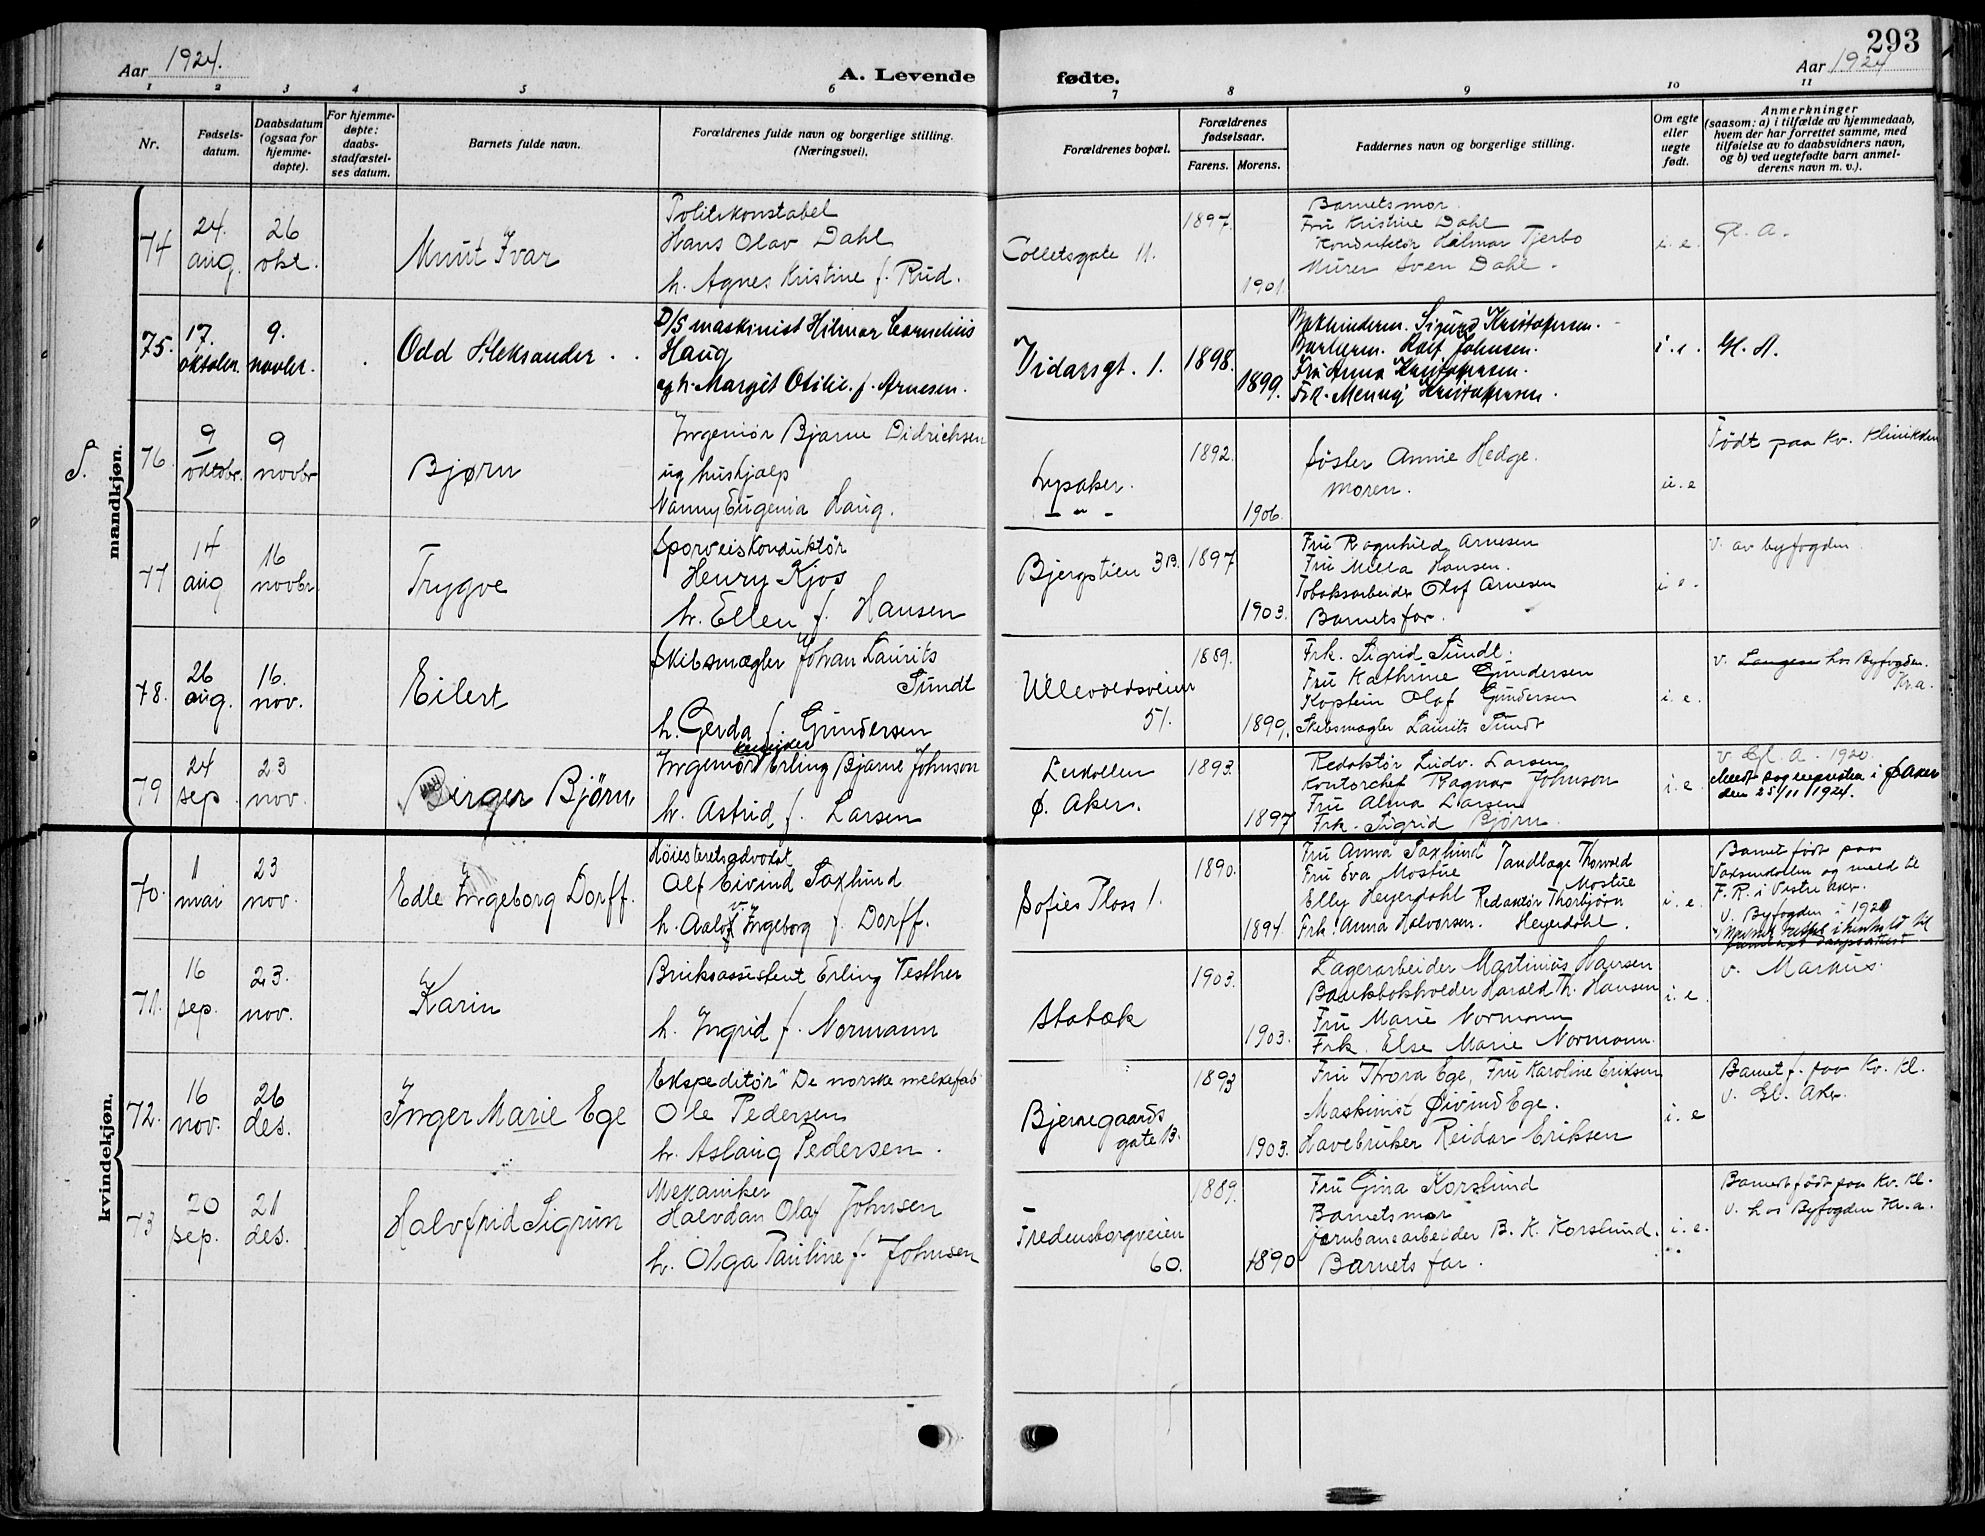 293
Aar 1924.
A. Levende
fødte.
Aar 1924
1 2 3 4 5 6 7 8 9 10 11
Nr.
Fødsels-
datum.
Daabsdatum
(ogsaa for
hjemme-
døpte).
For hjemme-
døpte:
daabs-
stadfæstel-
ses datum.
Barnets fulde navn.
Forældrenes fulde navn og borgerlige stilling.
(Næringsvei).
Forældrenes bopæl.
Forældrenes
fødselsaar.
Farens. Morens.
Faddernes navn og borgerlige stilling.
Om egte
eller
uegte
født.
Anmerkninger
(saasom: a) i tilfælde av hjemmedaab,
hvem der har forrettet samme, med
tilføielse av to daabsvidners navn,
og b) ved uegtefødte barn anmel-
derens navn m. v.).
mandkjøn.
74
24.
aug.
26
okt.
Knut Ivar
Politikonstabel
Hans Olav Dahl
h. Agnes Kristine f. Rud.
Colletsgate 11.
1897.
1901.
Barnets mor.
Fru Kristine Dahl
Konduktør Halmar Tjerbo
Murer Sven Dahl.
i. e.
Gl. A.
75.
17.
oktober
9.
novbr.
Odd Aleksander
D/S maskinist Hilmar Cornelius
Haug
og h. Margit Otilie. f. Arnesen.
Vidarsgt. 1.
1898.
1899.
Bokbinderm. Sigurd Kristofersen.
Barberm. Rolf Johnsen.
Fru Anna Kristofersen.
Frk. Menny Kristofersen.
i. e.
Gl. A.
S.
76.
9
oktobr.
9
novbr
Bjørn
Ingeniør Bjarne Didrichsen
og hushjælp
Nanny Eugenia Haug.
Lysaker.
— " —
1892.
1906.
Søster Annie Hedge.
moren.
u. e
Født paa Kv. Klinikken
77
14
aug
16
novbr.
Trygve
Sporveiskonduktør
Henry Kjos
h. Ellen f. Hansen
Bjergstien 3B.
1897
1903.
Fru Ragnhild Arnesen
Fru Milla Hansen.
Tobaksarbeider Olof Arnesen
Barnets far.
i. e.
V. av byfogden
78.
26
aug.
16.
nov.
Eilert
Skibsmægler Johan Laurits
Sundt
h. Gerda f. Gundersen
Ullevoldsveien
51.
1889.
1899.
Frk. Sigrid Sundt.
Fru Kathrine Gundersen
Kaptein Olaf Gundersen
Skibsmægler Laurits Sundt
i. e.
v. Langesn hos Byfogden.
Kr.a.
79
24
sep.
23
nov.
Birger Bjørn
Ingeniør Erling Bjarne Johnson
h. Astrid f. Larsen
Ø. Aker.
1893.
1897
Redaktør Ludv. Larsen
Kontorchef Ragnar Johnson
Fru Alma Larsen
Frk. Sigrid Bjørn.
i. e.
v. Gl. A. 1920.
Meldt sognepresten i Ø Aker
den 25/11 1924.
kvindekjøn.
70.
11
mai
23
nov.
Edle Ingeborg Dorff.
Høiesteretsadvokat
Olf Eivind Saxlund
h. Aalof Ingeborg f. Dorff.
Sofies Plass 1.
1890.
1894.
Fru Anna Saxlund Tandlæge Thorvald
Fru Eva Mostue Mostue
Elly Heyerdahl Redaktør Thorbjørn
Frk. Anna Halvorsen. Heyerdahl.
i. e.
Barnet født paa
Voksenkollen og meld til
F. R. i Vestre Aker.
V. Byfogden i 1920
71.
16
sep.
23.
nov.
Karin
Bruksassistent Erling Testher
h. Ingrid f. Normann
Stabæk
1903.
1903.
Lagerarbeider Martinius Hansen
Bankbokholder Harald Th. Hansen
Fru Marie Normann
Frk. Else Marie Normann.
i. e.
v. Markus.
72.
16
nov.
26
des.
Inger Marie Ege
Ekspeditør "De norske melkefab
Ole Pedersen
h. Aslaug Pedersen.
Bjerregaards
gate 13.
1893
1903.
Fru Thora Ege, Fru Karoline Eriksen
Maskinist Øivind Ege.
Havebruker Reidar Eriksen
i. e
Barnet f. paa Kv. kl.
V. Gl. Aker.
73
20
sep.
21
des.
Halvfrid Sigrun
Mekaniker
Halvdan Olaf Johnsen
h. Olga Pauline f. Johnsen
Fredensborgveien
60.
1889.
1890
Fru Gina Korslund
Barnets mor
Jernbanearbeider B. K. Korslund.
Barnets far.
i. e.
Barnet født paa Kv. kl.
v. hos Byfogden Kr.a.